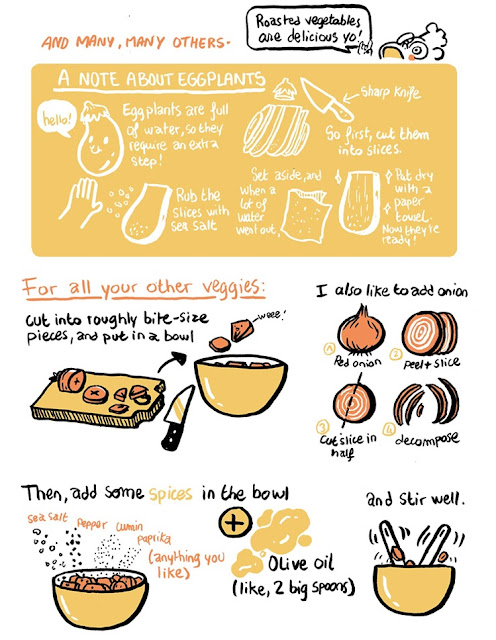 Roasted vegetables
are delicious yo!
AND MANY, MANY OTHERS.
A NOTE ABOUT EGGPLANTS
hello!
Eggplants are full
of water, so they
require an extra
step!
Sharp knife
So first, cut them
into slices.
Rub the
slices with
sea salt
Set aside, and
when a
lot of
water
went out,
Pat dry
with a
paper
towel.
Now they're
ready!
For all your other veggies:
Cut into roughly bite-size
pieces, and put in a bowl
weee!
I also like to add onion
1
Red onion
2
peel + slice
3
Cut slice in
half
4
decompose
Then, add some spices in the bowl
sea salt
pepper
cumin
paprika
(anything you
like)
+
Olive oil
(like, 2 big spoons)
and stir well.